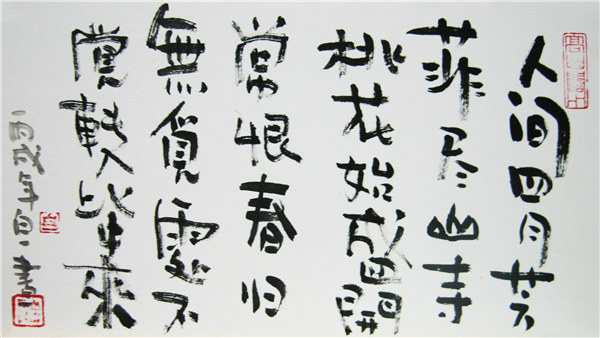 人间四月芳
菲尽山寺
桃花始盛開
常恨春归
無覓處不
覚轉入此中來
丙戌年書